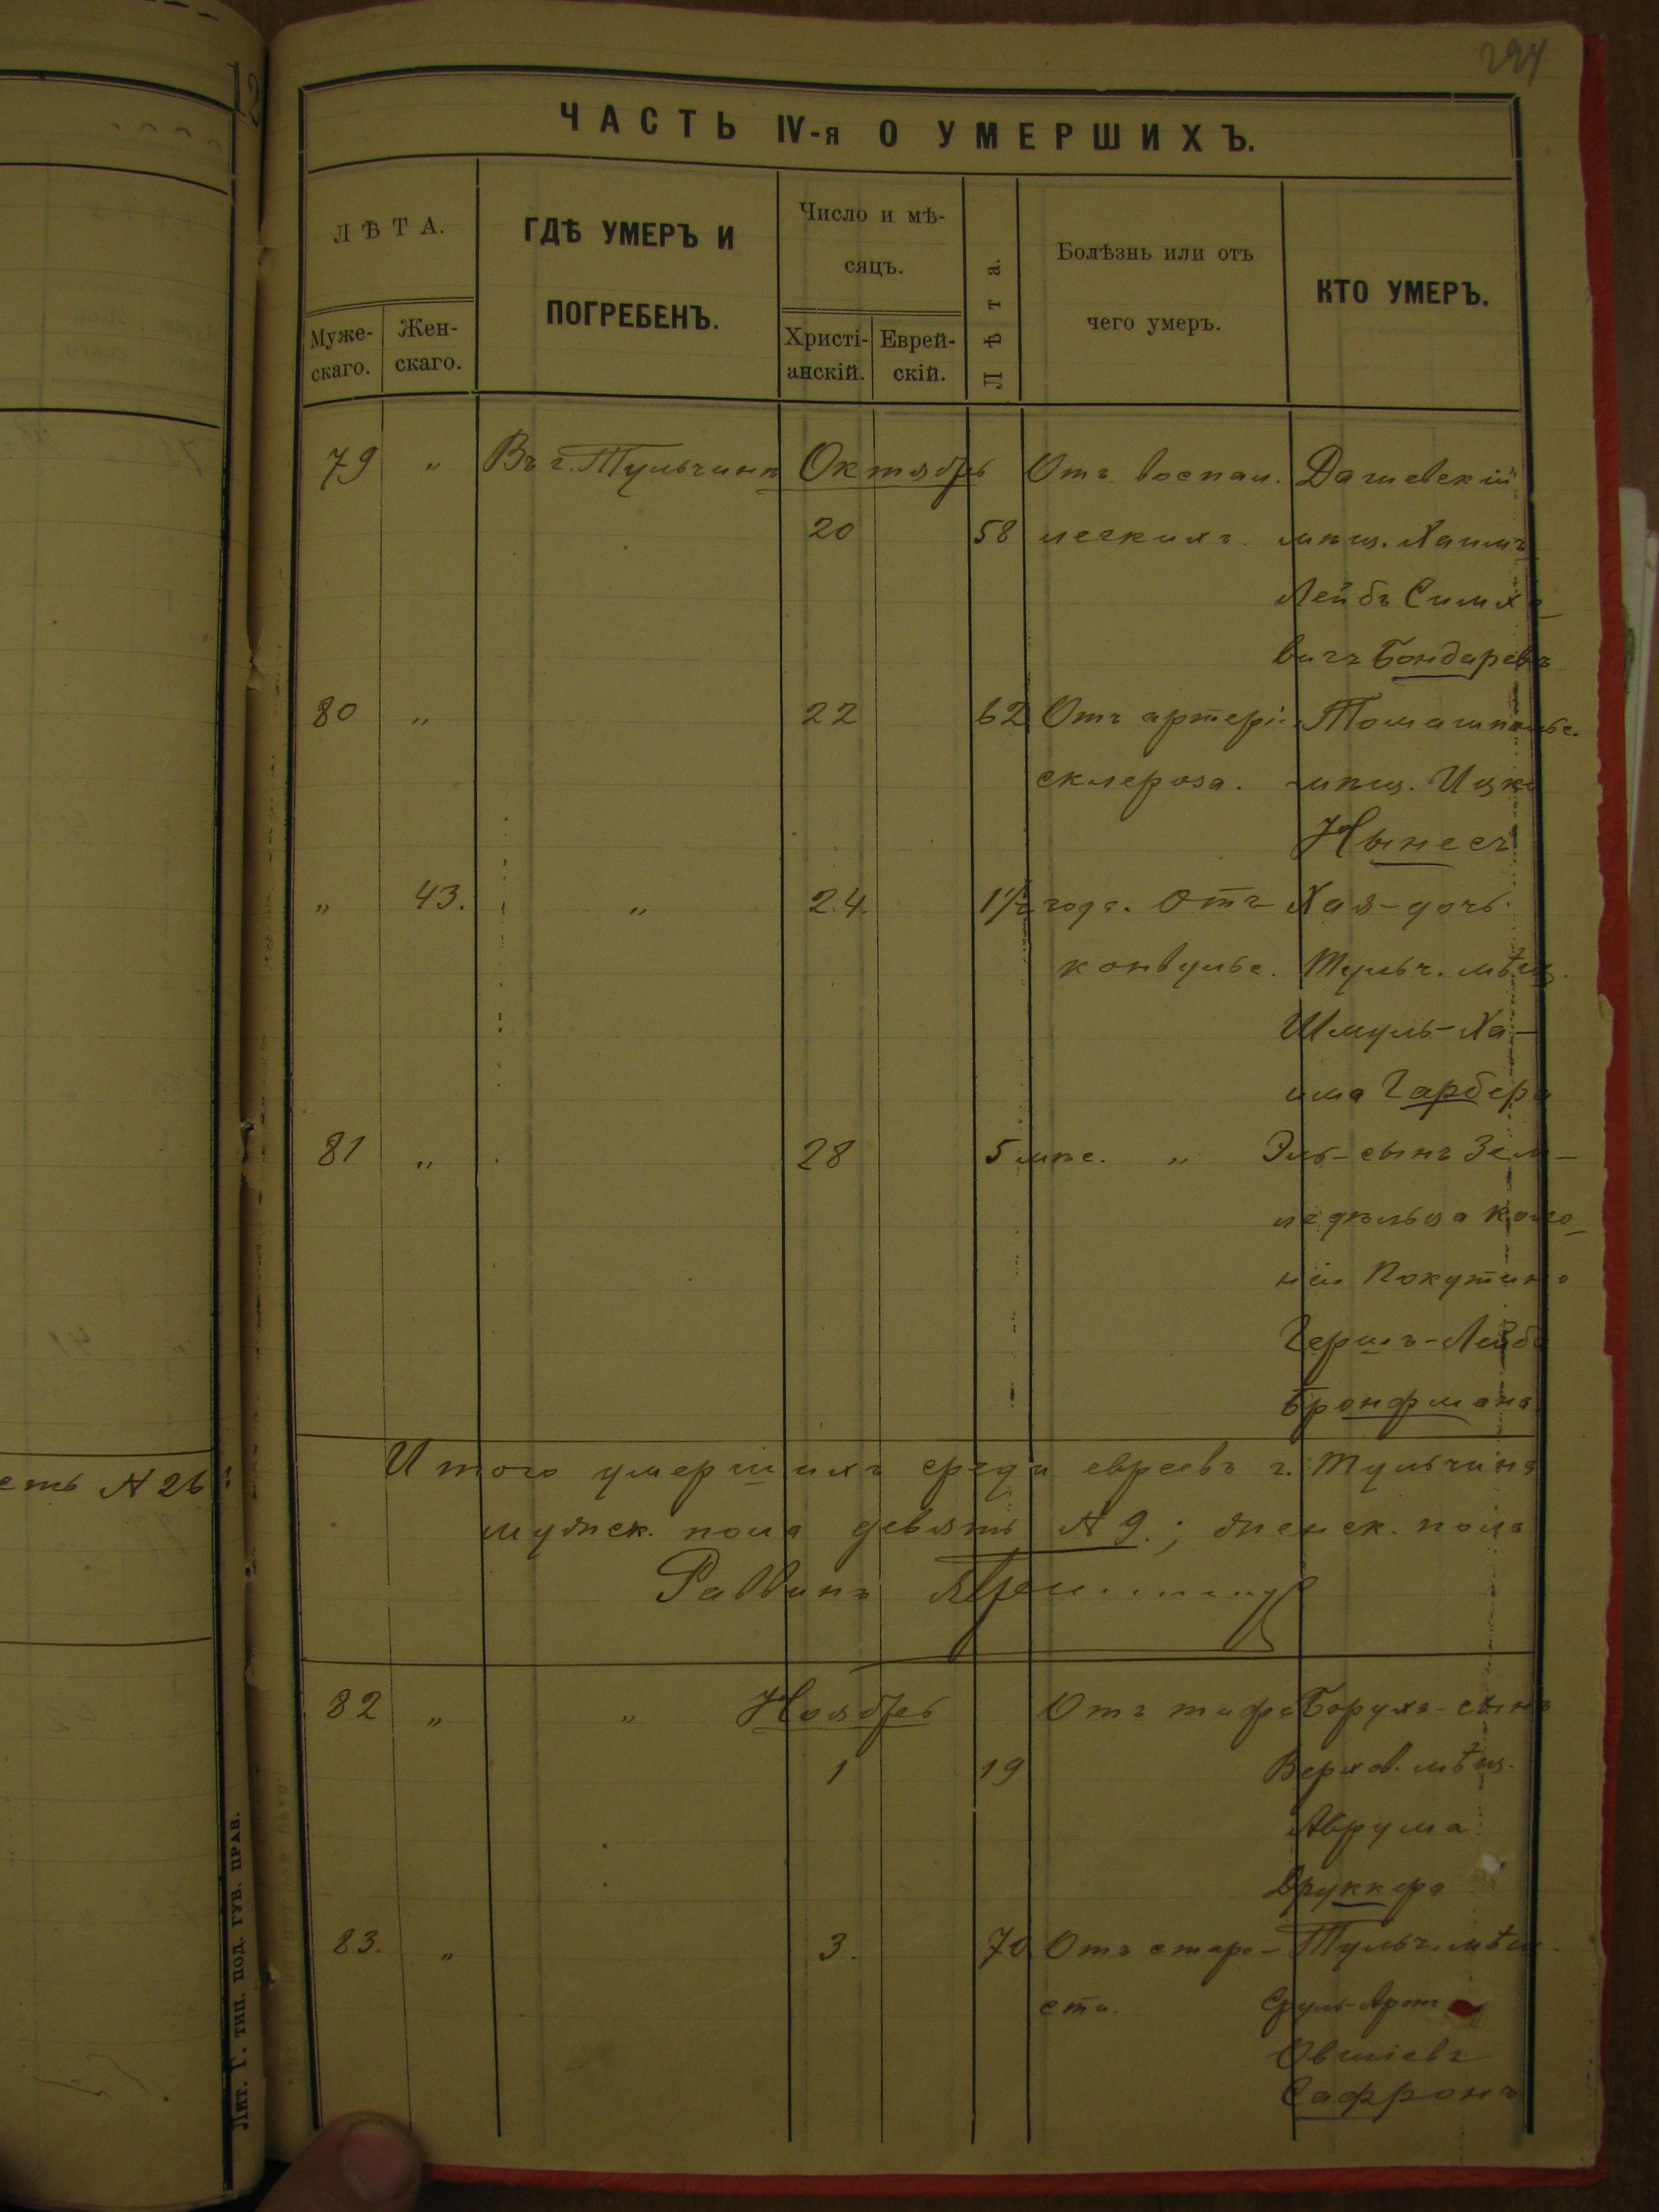 294
ЧАСТЬ IV-я О УМЕРШИХЪ.
ЛѢТА.
Муже-
скаго.
Жен-
скаго.
ГДѢ УМЕРЪ И
ПОГРЕБЕНЪ.
Число и мѣ-
сяцъ.
Христі-
анскій.
Еврей-
скій.
Лѣта.
Болѣзнь или отъ
чего умеръ.
КТО УМЕРЪ.
79 " Въ г. Тульчинѣ Октябрь Отъ воспал. Дашевскій
20 58 легкихъ. мѣщ. Хаимъ
Лейбъ Симхо
вичъ Бондаревъ
80 " 22 62 Отъ артеріо Томашпольс.
склероза. мѣщ. Ицко
43. " 24. 1½ года. Отъ Хая-дочь
" конвульс. Тульч. мѣщ.
Шмуль-Ха-
има Гарбера
81 " 28 5 мѣс. " Эль-сынъ Зем-
ледѣльца коло-
ніи Покутино
Гершъ-Лейба
Бронфмана
Итого умершихъ среди евреевъ г. Тульчина
мужск. пола девять № 9.; женск. пола
Раввинъ
82 " " Ноябрь Отъ тифа Борухъ-сынъ
1 19 Верхов. мѣщ.
Аврума
Друккера
83. " 3. 70 Отъ старо- Тульч. мѣщ.
сти. Сруль-
Овшіевъ
Сафронъ
сть № 26
Лит. Г. тип. под. губ. прав.